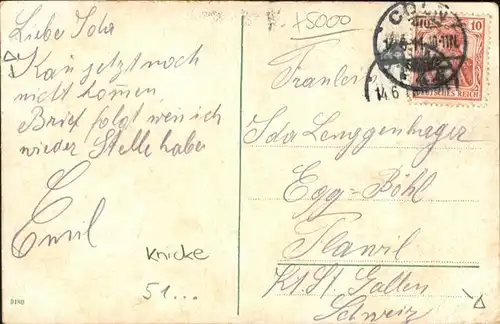 Liebe Ida
Kan jetzt noch
nicht komen,
Brief folgt wen ich
wieder Stelle habe
Emil
Knicke
51...
+5000
10
DEUTSCHES REICH
14.6
Fraulein
Ida Lenggenhager
Egg-Böhl
Flawil
Kt. St. Gallen
Schweiz